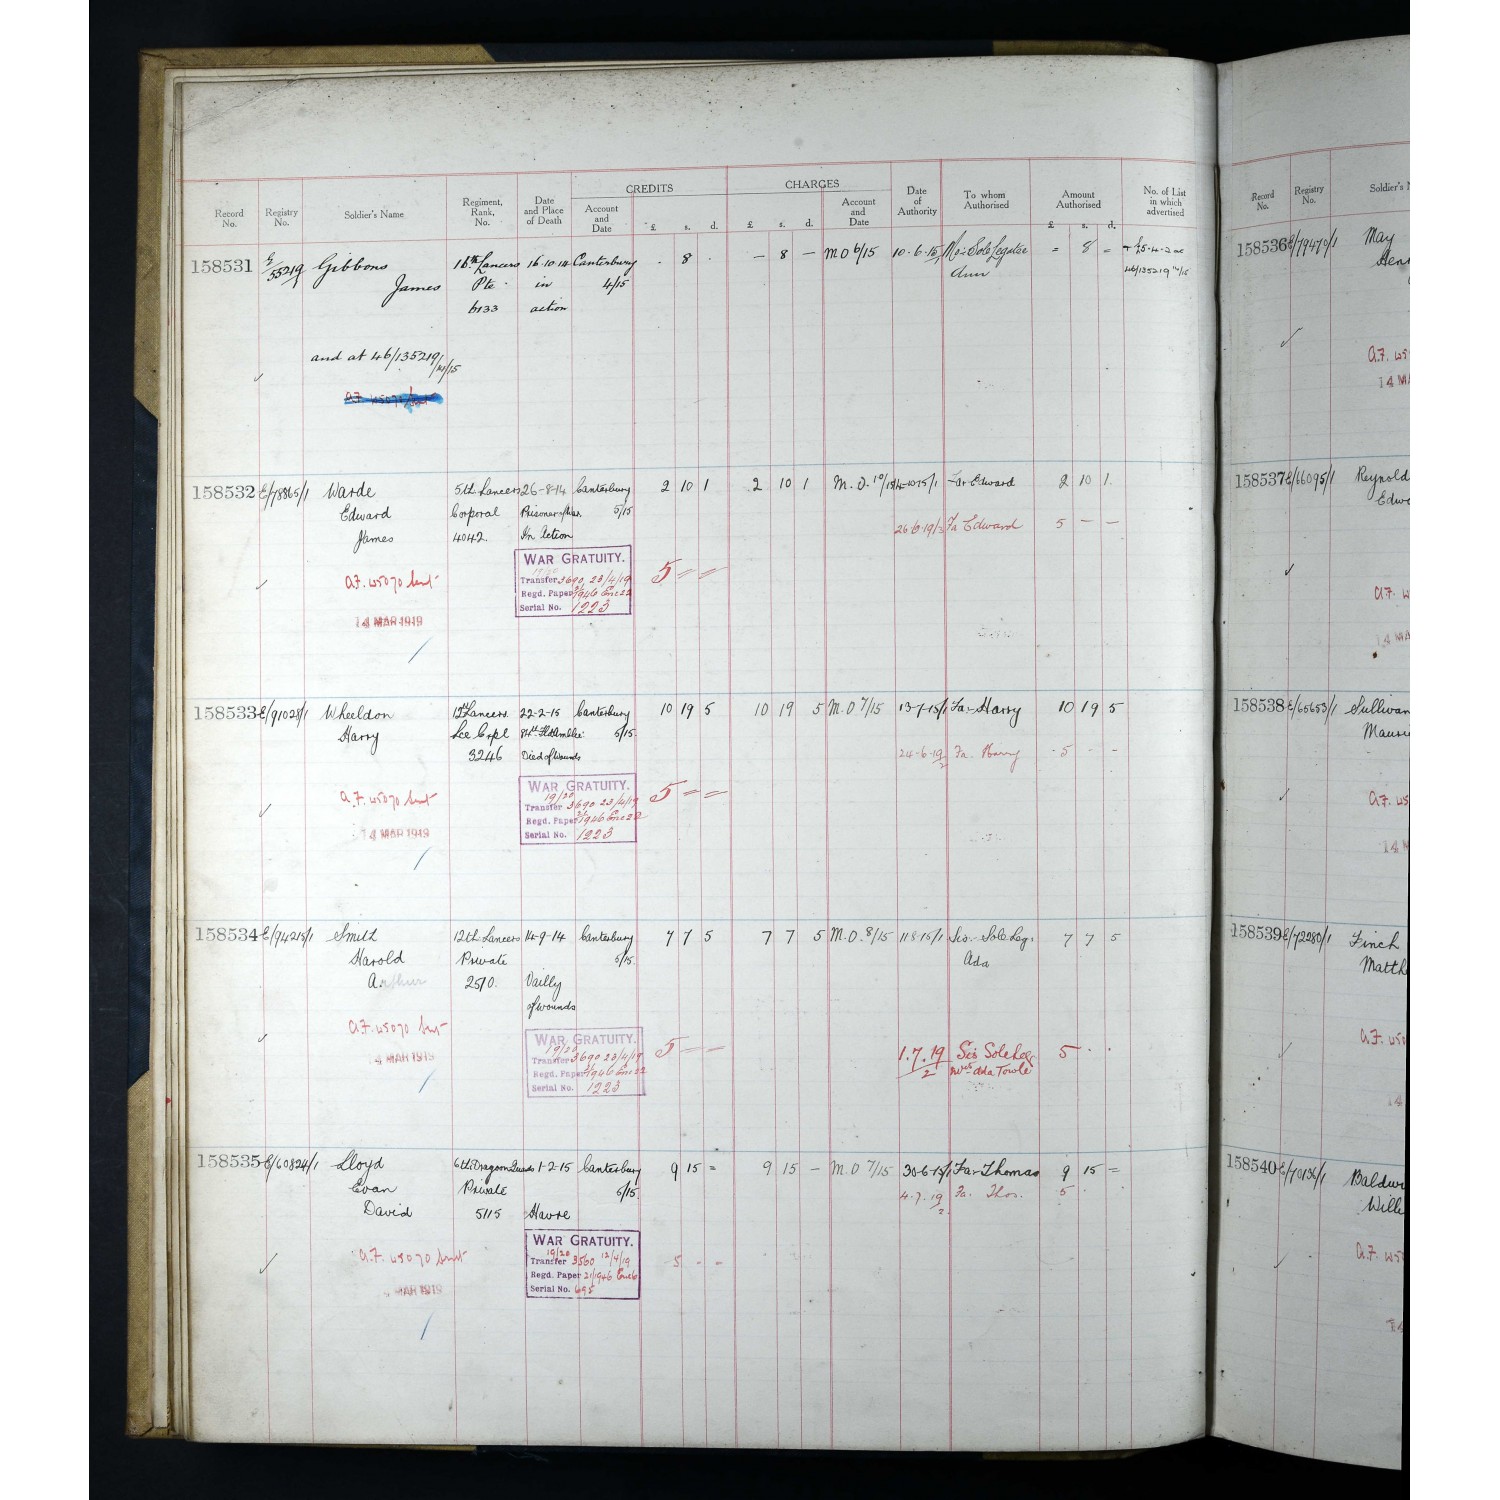 CREDITS CHARGES
Record No. Registry No. Soldier's Name Regiment, Rank, No. Date and Place of Death Account and Date £ s. d. £ s. d. Account and Date Date of Authority To whom Authorised Amount Authorised £ s. d. No. of List in which advertised
Record No. Registry No. Soldier's N
158531 E/55219/1 Gibbons 16th Lancers 16.10.14 Canterbury - 8 - - 8 - M O 6/15 10.6.15/1 Mo: Sole Legatee = 8 =
James Pte in 4/15 Ann
6133 action
and at 46/135219/15
158532 E/78865/1 Warde 5th Lancers 26-8-14 Canterbury 2 10 1 2 10 1 M.O. 10/15 Fa: Edward 2 10 1
Edward Corporal Prisoner of War 5/15
James 4042. In Action
26.6.19/3 Fa Edward 5 - -
WAR GRATUITY.
A.F. W5070 Sent Transfer 3690 23/4/19 5 = =
Regd. Paper 21/1946 Enc 22
Serial No. 1223
14 MAR 1919
158533 E/91028/1 Wheeldon 12th Lancers 22-2-15 Canterbury 10 19 5 10 19 5 M.O 7/15 13-7-15/1 Fa: Harry 10 19 5
Harry Lce Crpl 5/15
3246 Died of wounds
24-6-19/2 Fa. Harry - 5 - -
WAR GRATUITY.
19/20
A.F. W5070 Sent Transfer 3690 23/4/19 5 = =
Regd. Paper 21/1946 Enc 22
Serial No. 1223
14 MAR 1919
158534 E/94215/1 Smith 12th Lancers 14-9-14 Canterbury 7 7 5 7 7 5 M.O. 8/15 11.8.15/1 Sis. Sole Leg. 7 7 5
Harold Private 5/15. Ada
Arthur 2510. Vailly
of wounds
WAR GRATUITY.
19/20
A.F. W5070 Sent Transfer 3690 23/4/19 5 = = 1.7.19/2 Sis Sole Leg 5 - -
Regd. Paper 21/1946 Enc 22 Mrs Ada Towle
Serial No. 1223
4 MAR 1919
158535 E/60824/1 Lloyd 6th Dragoon Guards 1-2-15 Canterbury 9 15 = 9 15 - M.O 7/15 30-6-15/1 Fa: Thomas 9 15 =
Evan Private 5/15 4.7.19/2 Fa. Thos. 5 - -
David 5115 Havre
WAR GRATUITY.
19/20
A.F. W5070 Sent Transfer 3560 12/4/19 5 - -
Regd. Paper 21/1946 Enc 6
Serial No. 695
MAR 1919
158536 E/79470/1 May
158537 E/66095/1 Reynold
Edw
158538 E/65653/1 Sullivan
158539 E/72280/1 Finch
Matth
158540 E/70136/1 Baldw
Willi